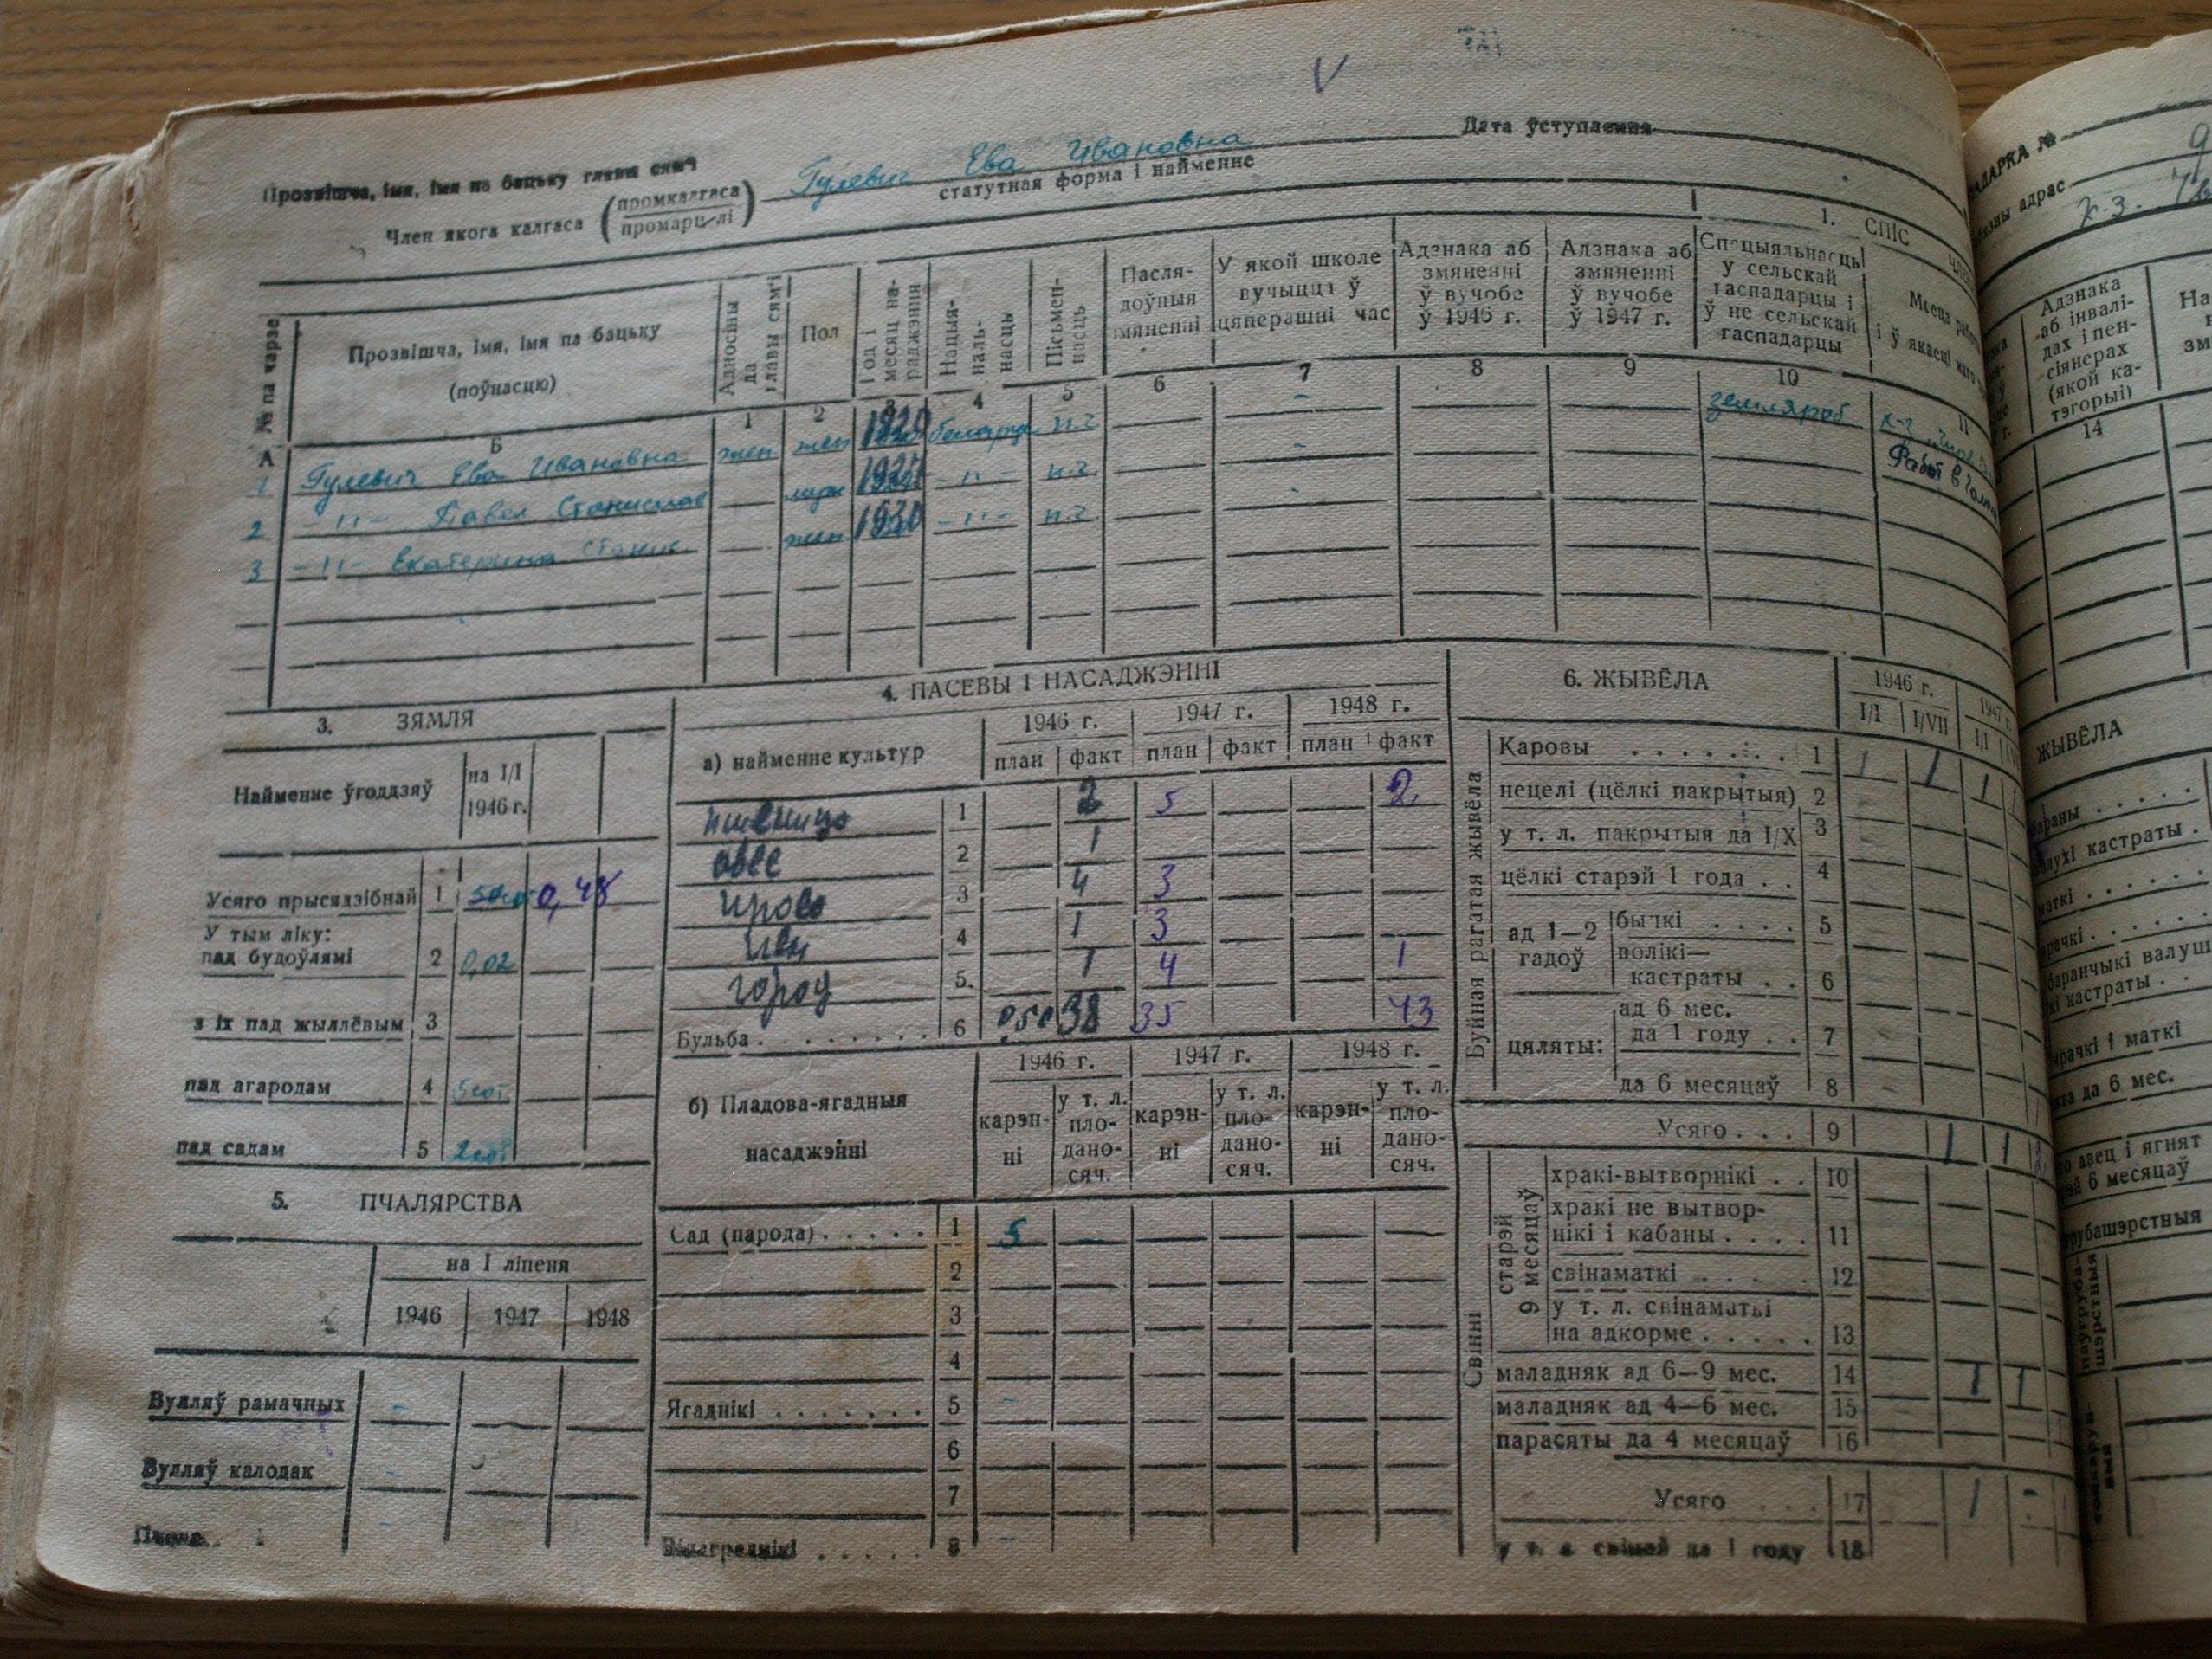 Прозвішча, імя, імя па бацьку главы сям'і
Гулевич Ева Ивановна
Дата ўступлення
Член якога калгаса (промкалгаса промарцелі)
статутная форма і найменне
1. СПІС
№ па чарзе
Прозвішча, імя, імя па бацьку (поўнасцю)
Адносіны да главы сям'і
Пол
Год і месяц нараджэння
Нацыянальнасць
Пісьменнасць
Пасля-
доўныя
змяненні
У якой школе
вучыцца ў
цяперашні час
Адзнака аб
змяненні
ў вучобе
ў 1946 г.
Адзнака аб
змяненні
ў вучобе
ў 1947 г.
Спецыяльнасць
у сельскай
гаспадарцы і
ў не сельскай
гаспадарцы
Месца
і ў якасці каго
А Б 1 2 3 4 5 6 7 8 9 10 11
1 Гулевич Ева Ивановна жен жен 1920 н.г. - земляроб
2 -"- Павел Станислав -"- н.г. -
3 -"- Екатерина Станис жен 1930 -"- н.г. -
3. ЗЯМЛЯ
Найменне ўгоддзяў
на I/I
1946 г.
Усяго прысядзібнай 1 0,48
У тым ліку:
пад будоўлямі 2 0,02
з іх пад жыллёвым 3
пад агародам 4 5сот.
пад садам 5 2сот.
5. ПЧАЛЯРСТВА
на I ліпеня
1946 1947 1948
Вулляў рамачных -
Вулляў калодак -
4. ПАСЕВЫ І НАСАДЖЭННІ
а) найменне культур
1946 г. 1947 г. 1948 г.
план факт план факт план факт
пшеница 1 2 5 2
овес 2 1
просо 3 4 3
лен 4 1 3
город 5. 1 4 1
Бульба 6 38 35 43
б) Пладова-ягадныя
насаджэнні
1946 г. 1947 г. 1948 г.
карэн-
ні
у т. л.
пло-
дано-
сяч.
карэн-
ні
у т. л.
пло-
дано-
сяч.
карэн-
ні
у т. л.
пло-
дано-
сяч.
Сад (парода) 1 5 -
2
3
4
Ягаднікі 5
6
7
Вінаграднікі 8
6. ЖЫВЁЛА
1946 г. 1947
I/I I/VII I/I
Буйная рагатая жывёла
Каровы 1 1 1 1 1
нецелі (цёлкі пакрытыя) 2
у т. л. пакрытыя да I/X 3
цёлкі старэй 1 года 4
ад 1—2
гадоў
бычкі 5
волікі—
кастраты 6
цяляты:
ад 6 мес.
да 1 году 7
да 6 месяцаў 8
Усяго 9 1 1 2
Свінні
старэй 9 месяцаў
хракі-вытворнікі 10
хракі не вытвор-
нікі і кабаны 11
свінаматкі 12
у т. л. свінаматкі
на адкорме 13
маладняк ад 6—9 мес. 14 1 1
маладняк ад 4—6 мес. 15
парасяты да 4 месяцаў 16
Усяго 17 1 -
у т. л. свіней да 1 году 18
№
адрас
Адзнака
аб інвалі-
дах і пен-
сіянерах
(якой ка-
тэгорыі)
14
ЖЫВЁЛА
кастраты
маткі
баранчыкі валуш
кастраты
і маткі
да 6 мес.
авец і ягнят
6 месяцаў